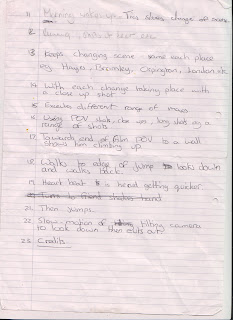 11 Morning wakes up - This shows change of scene
12 Running,
13 Keeps changing scene - name each place
eg. Hayes - Bromley, Orpington, London etc
14 With each change taking place with
a close up shot
15 Executes different range of
16 Using POV shots, close ups, long shots as a
range of shots
17 Towards end of film POV to a wall
shows him climbing up.
18 Walks to edge of jump to look down
and walks back.
19 Heart beat is heard getting quicker
20 Turns to friend shakes hand
21. Then jumps.
22 Slow-motion of tilting camera
to look down then cuts out.
23 Credits.